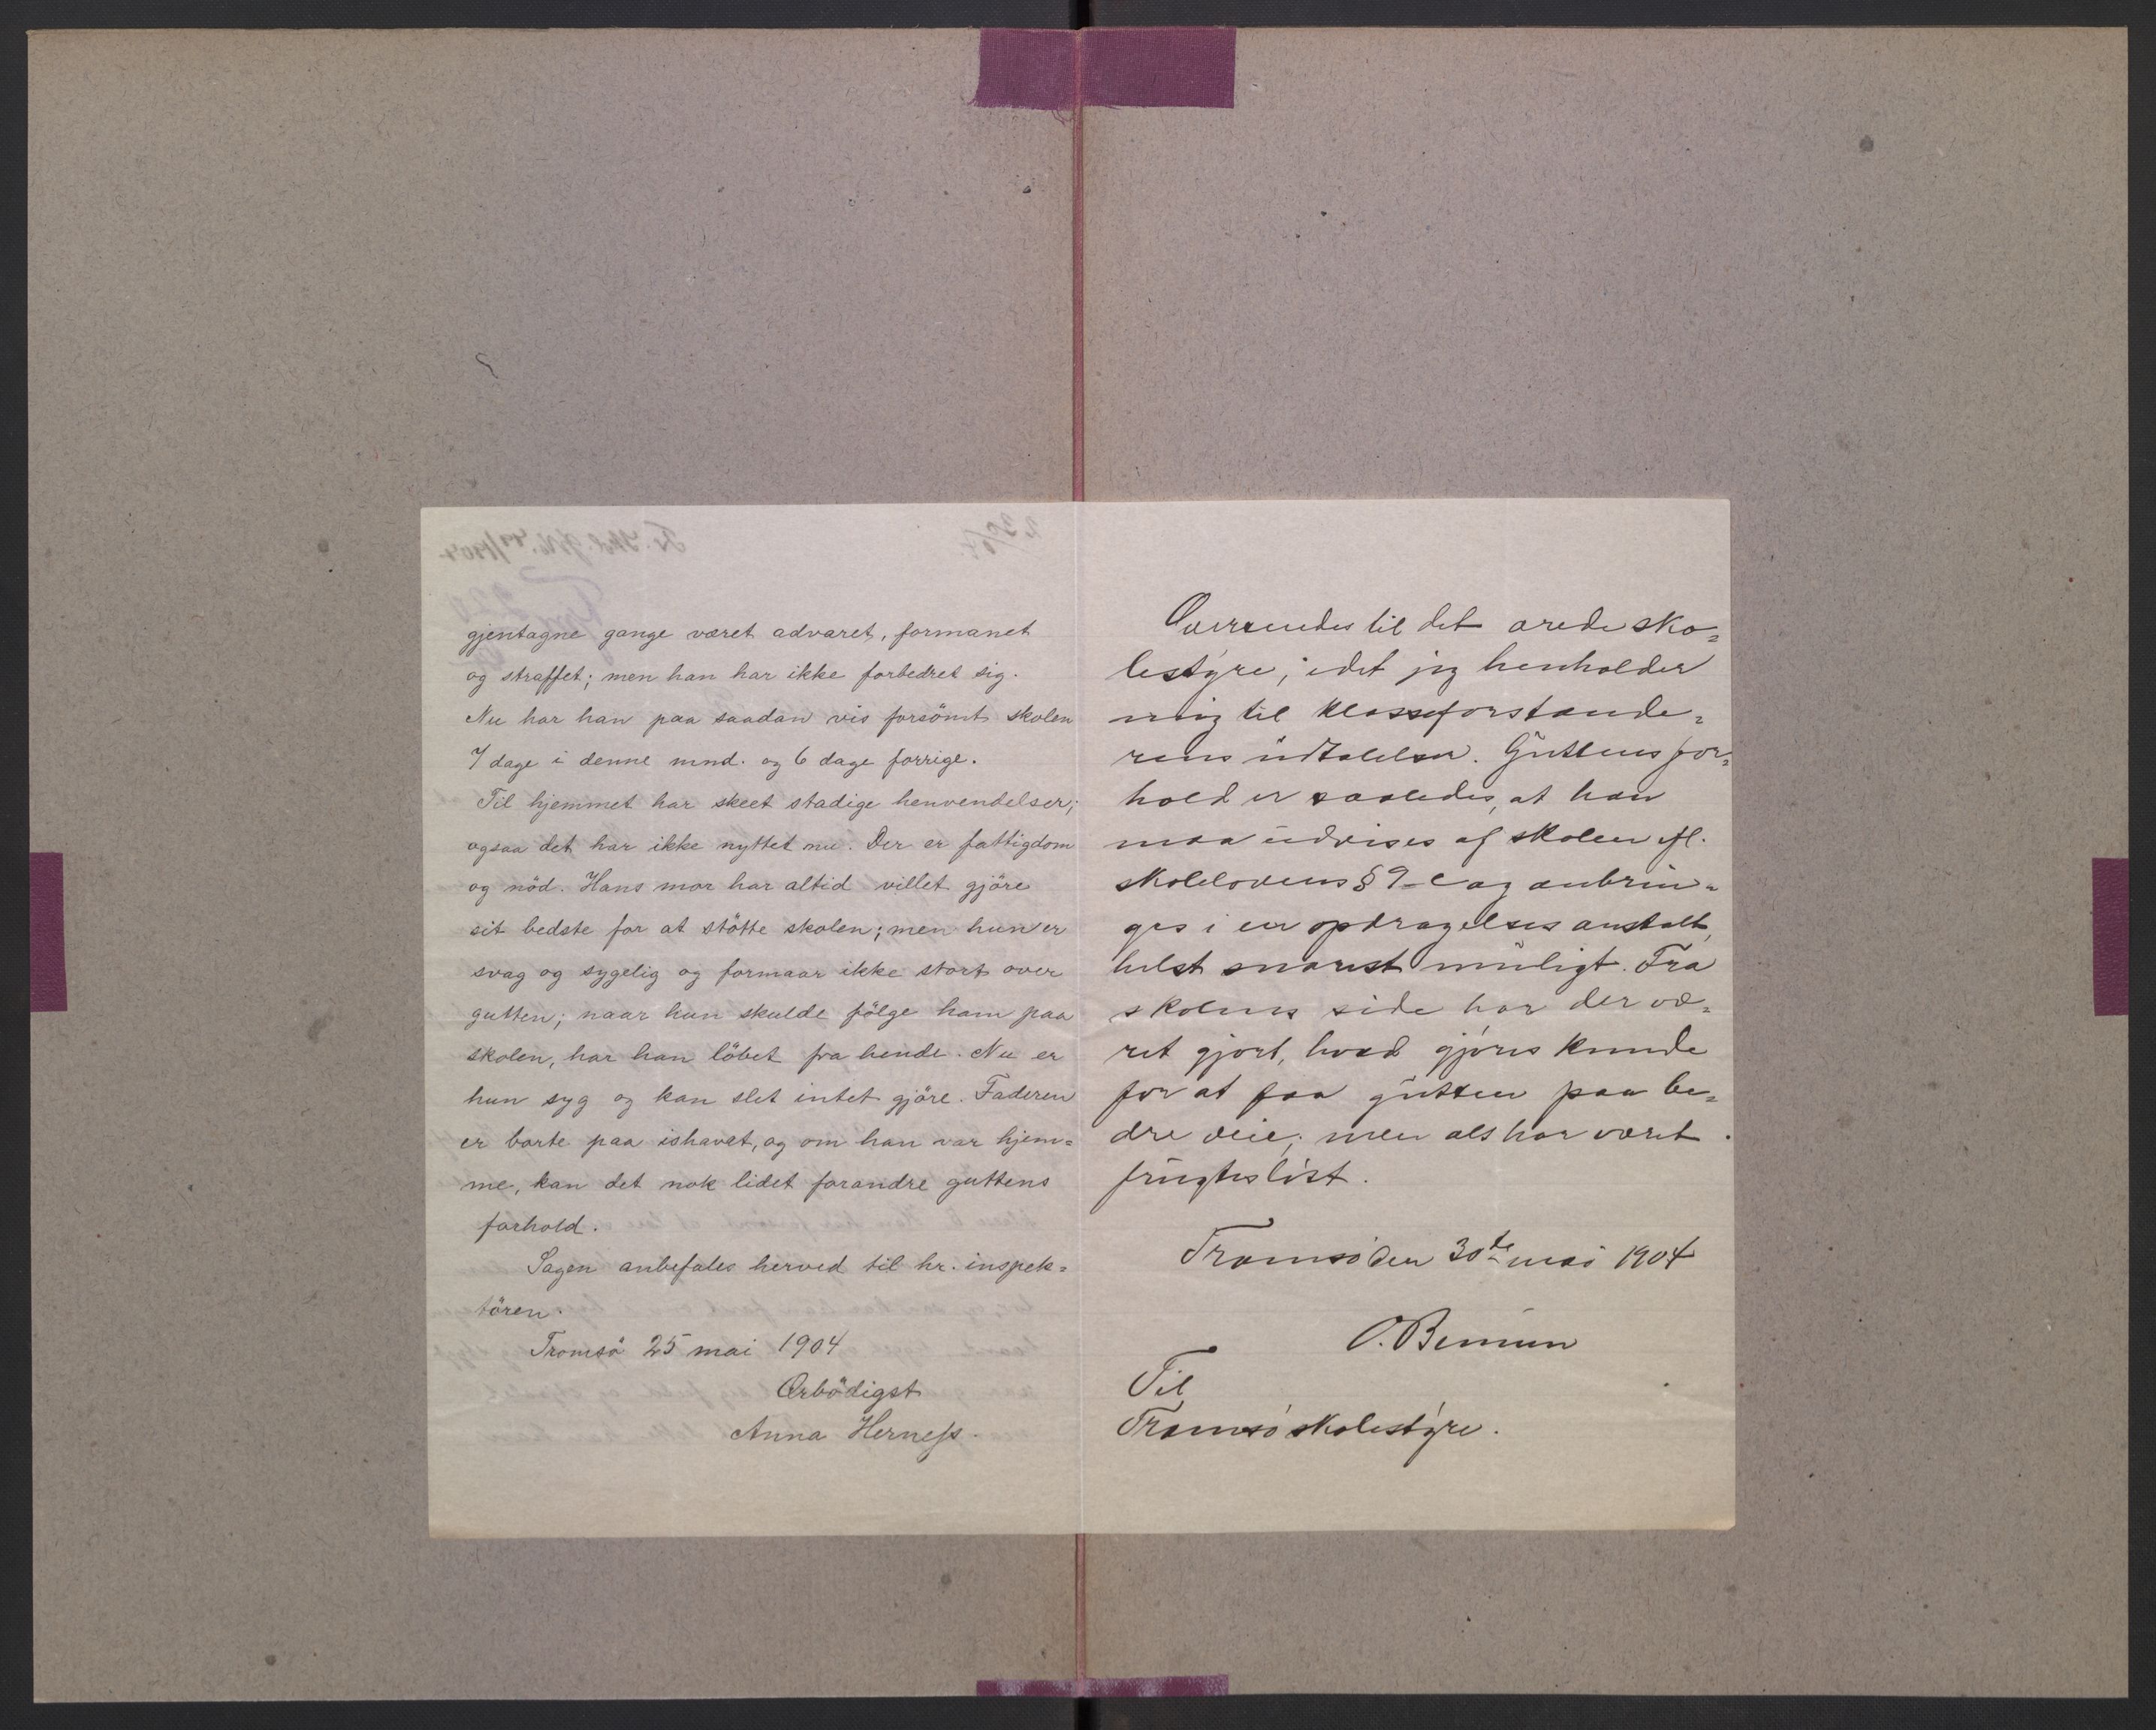 gjentagne gange været advaret, formanet
og straffet; men han har ikke forbedret sig.
Nu har han paa saadan vis forsömt skolen
7 dage i denne mnd. og 6 dage forrige.
Til hjemmet har skeet stadige henvendelser;
ogsaa det har ikke nyttet nu. Der er fattigdom
og nöd. Hans mor har altid villet gjöre
sit bedste for at stötte skolen; men hun er
svag og sygelig og formaar ikke stort over
gutten; naar hun skulde fölge ham paa
skolen, har han löbet fra hende. Nu er
hun syg og kan slet intet gjöre. Faderen
er borte paa ishavet, og om han var hjem=
me, kan det nok lidet forandre guttens
forhold.
Sagen anbefales herved til hr. inspek=
tören.
Tromsö 25 mai 1904
Ærbödigst
Anna Herness.
Oversendes til det ærede sko=
lestyre, idet jeg henholder
mig til klasseforstande=
rens udtalelser. Guttens for=
hold er saaledes, at han
maa udvises af skolen efl.
skolelovens § 9 - c og anbrin=
ges i en opdragelsesanstalt,
helst snarest muligt. Fra
skolens side har der væ=
ret gjort, hvad gjöres kunde
for at faa gutten paa be=
dre veie; men alt har været
frugteslöst.
Tromsö den 30te mai 1904
O.
Til
Tromsö skolestyre.